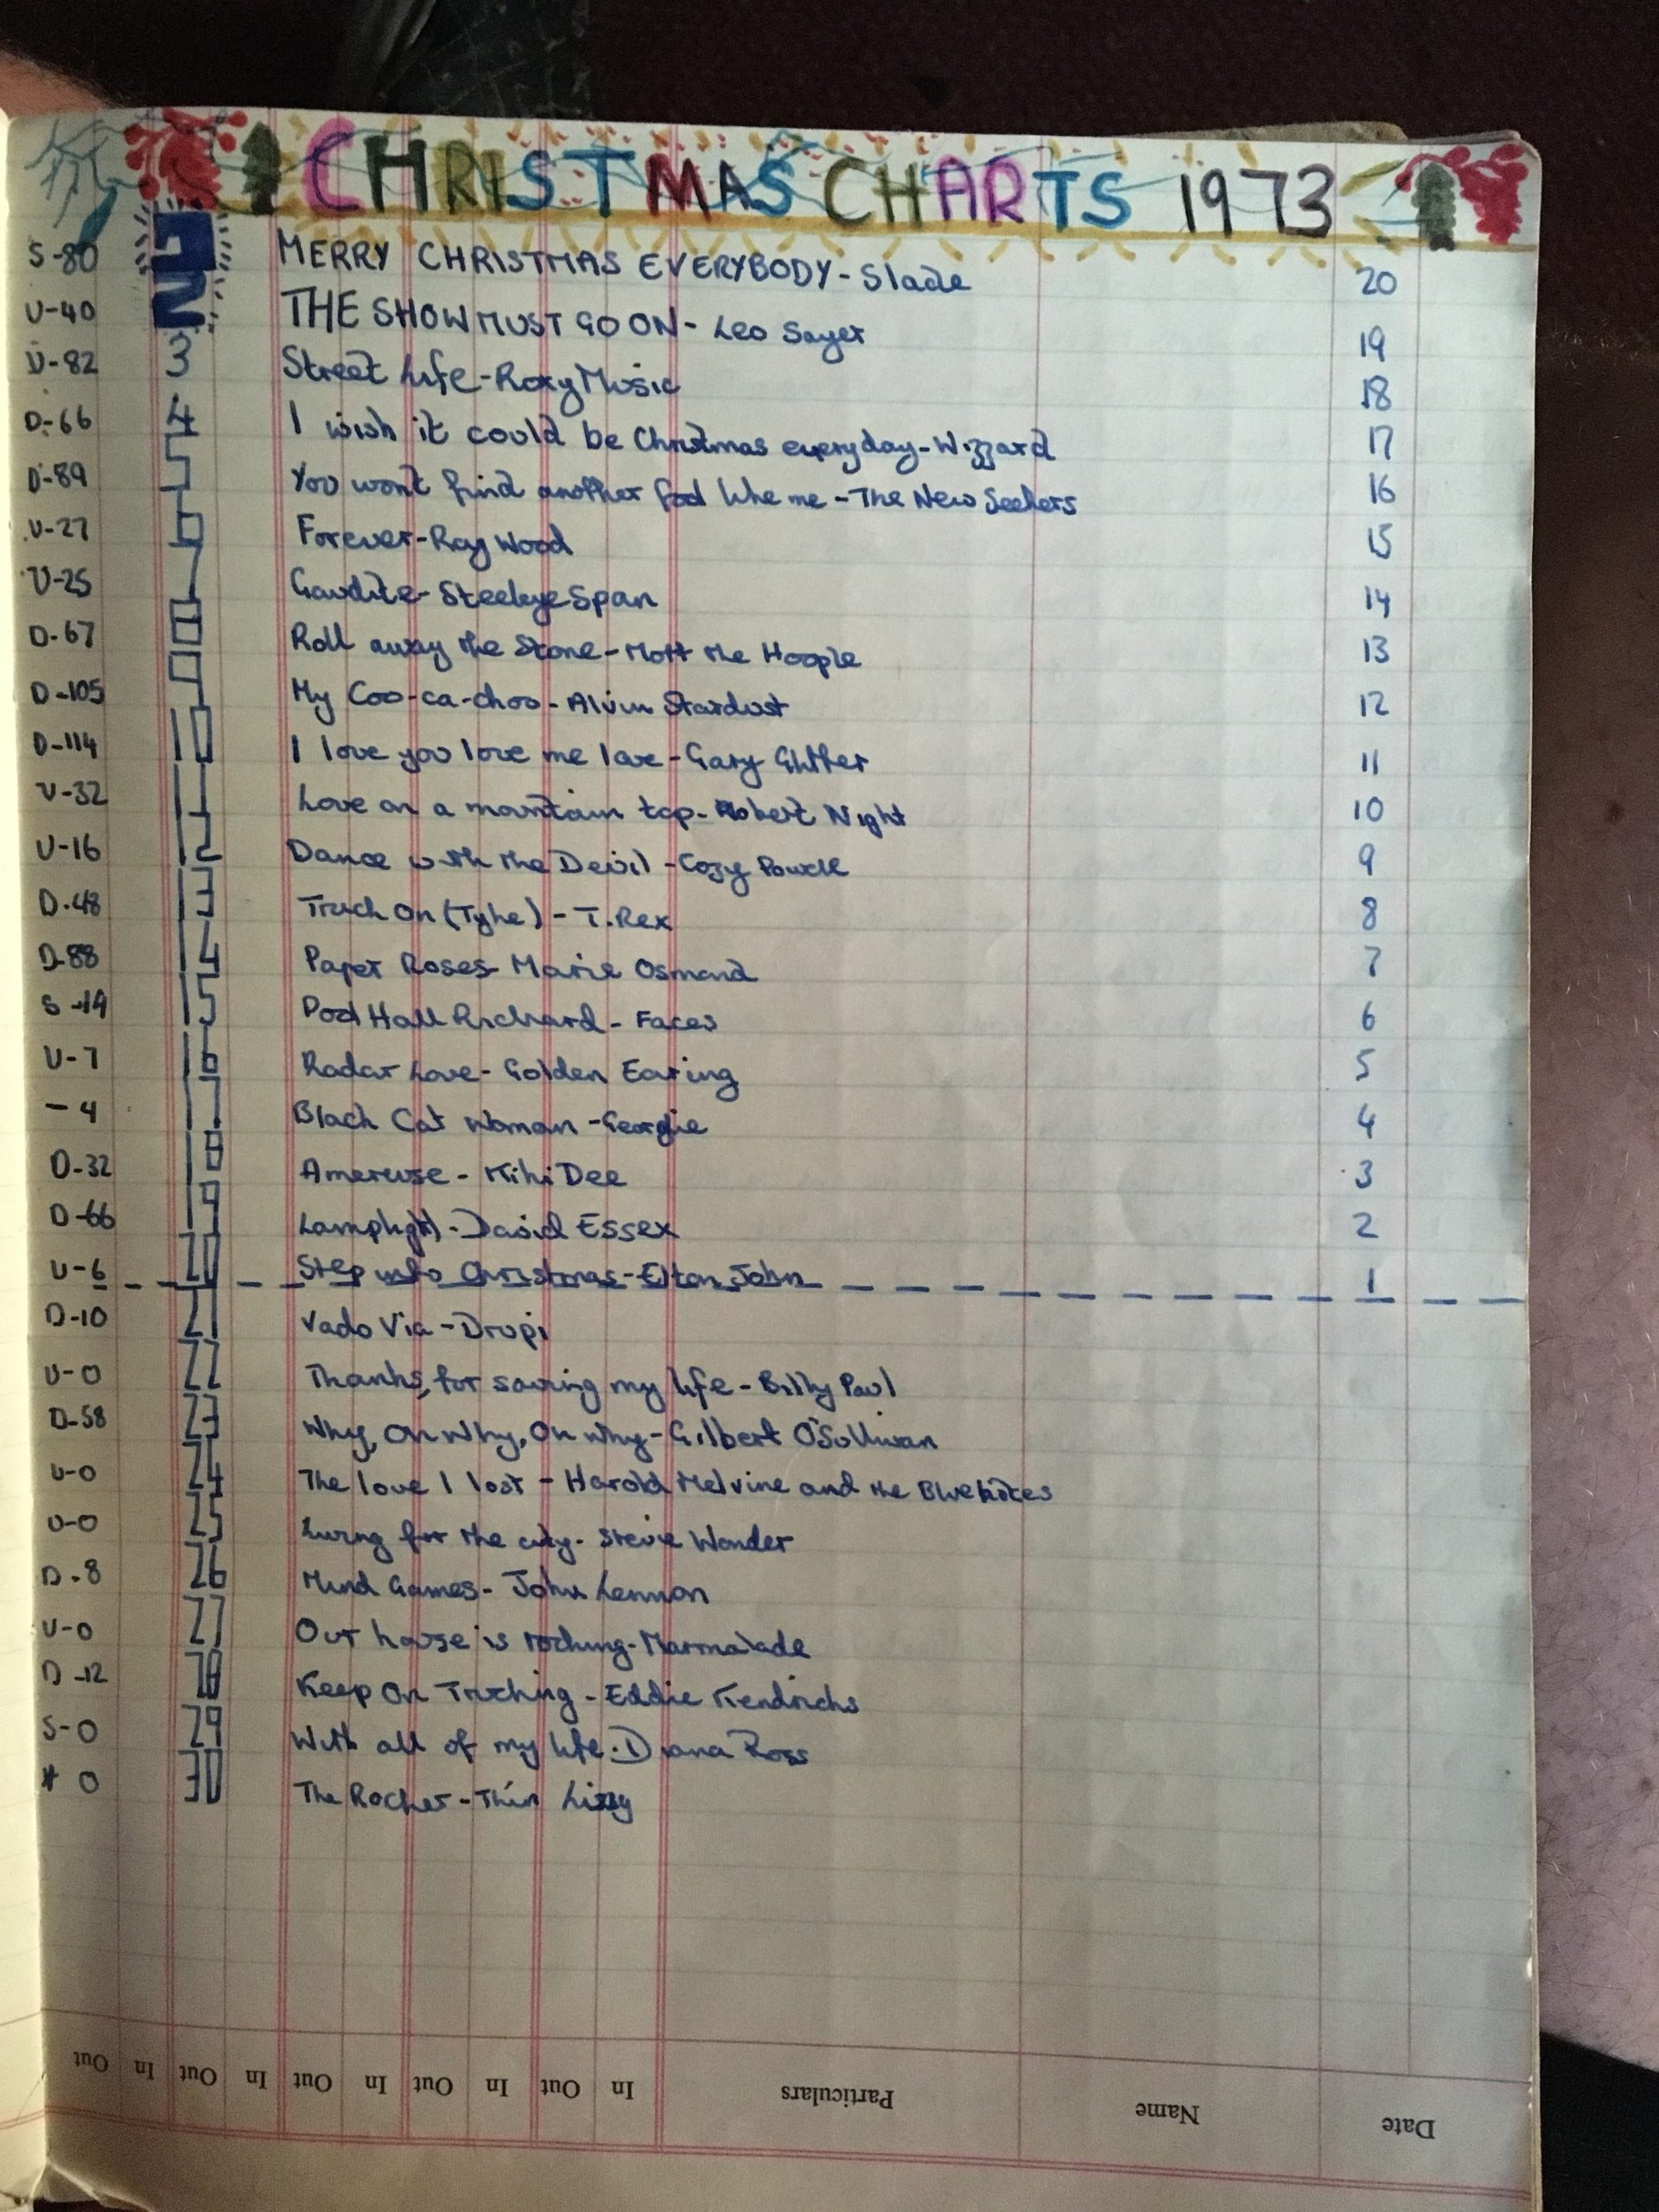 CHRISTMAS CHARTS 1973
S-80 1 MERRY CHRISTMAS EVERYBODY - Slade 20
U-40 2 THE SHOW MUST GO ON - Leo Sayer 19
U-82 3 Street Life - Roxy Music 18
D-66 4 I wish it could be Christmas everyday - Wizzard 17
D-89 5 You won't find another fool like me - The New Seekers 16
U-27 6 Forever - Roy Wood 15
U-25 7 Gaudite - Steeleye Span 14
D-67 8 Roll away the Stone - Mott the Hoople 13
D-105 9 My Coo-ca-choo - Alvin Stardust 12
D-114 10 I love you love me love - Gary Glitter 11
U-32 11 Love on a mountain top - Robert Night 10
U-16 12 Dance with the Devil - Cozy Powell 9
D-48 13 Truck On (Tyke) - T.Rex 8
D-88 14 Paper Roses - Marie Osmond 7
S-19 15 Pool Hall Richard - Faces 6
U-7 16 Radar Love - Golden Earing 5
- 4 17 Black Cat Woman - Geordie 4
D-32 18 Amereuse - Kiki Dee 3
D-66 19 Lamplight - David Essex 2
U-6 20 Step into Christmas - Elton John 1
D-10 21 Vado Via - Drupi
U-0 22 Thanks, for saving my life - Billy Paul
D-58 23 Why, Oh Why, Oh Why - Gilbert O'Sullivan
U-0 24 The love I lost - Harold Melvine and the Bluenotes
U-0 25 Living for the city - Stevie Wonder
D-8 26 Mind Games - John Lennon
U-0 27 Our house is rocking - Marmalade
D-12 28 Keep On Trucking - Eddie Kendricks
S-0 29 With all of my life - Diana Ross
* 0 30 The Rocker - Thin Lizzy
Out In Out In Out In Out In Out In Particulars Name Date